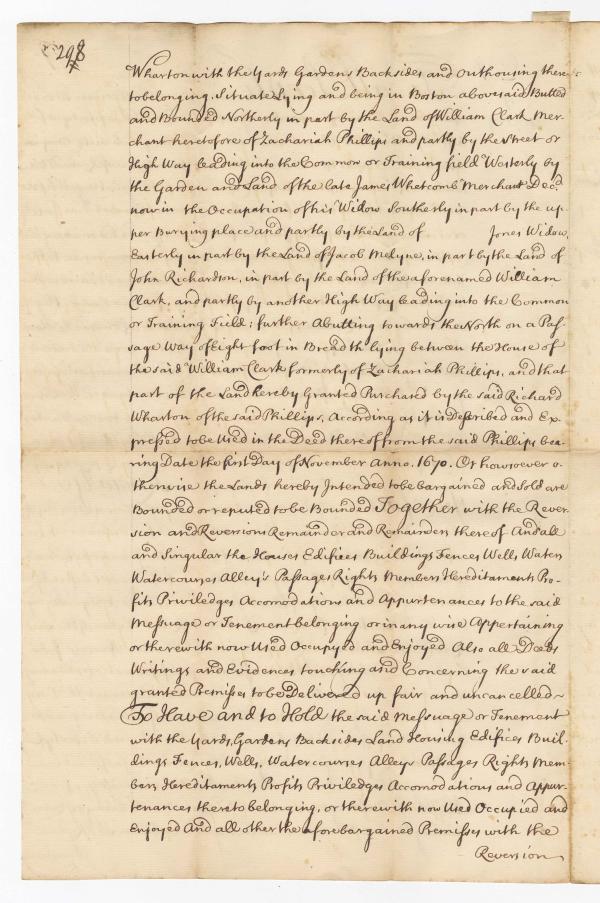 298
Wharton with the Yards Gardens Backsides and Outhousing there
to belonging. Situate Lying and being in Boston abovesaid Butted
and Bounded Northerly in part by the Land of William Clark Mer-
chant heretofore of Zachariah Phillips and partly by the Street or
High Way leading into the Common or Training field Westerly by
the Garden and Land of the late James Whetcomb Merchant Decd
now in the Occupation of his Widow Southerly in part by the up-
per Burying place and partly by the Land of Jones Widow,
Easterly in part by the Land of Jacob Melyne, in part by the Land of
John Richardson, in part by the Land of the aforenamed William
Clark, and partly by another High Way leading into the Common
or Training Field; further Abutting towards the North on a Pas-
sage Way of Eight foot in Breadth lying between the House of
the said William Clark formerly of Zachariah Phillips, and that
part of the Land hereby Granted Purchased by the said Richard
Wharton of the said Phillips, According as it is Described and Ex-
pressed to be Used in the Deed thereof from the said Phillips bea-
ring Date the first Day of November Anno. 1670. Or howsoever o-
therwise the Lands hereby Intended to be bargained and Sold are
Bounded or reputed to be Bounded Together with the Rever-
sion and Reversions Remainder and Remainders thereof And all
and Singular the Houses Edifices Buildings Fences Wells Waters
Watercourses Alley's Passages Rights Members Hereditaments Pro-
fits Priviledges Accomodations and Appurtenances to the said
Messuage or Tenement belonging or in any wise Appertaining
or therewith now Used Occupyed and Enjoyed Also all Deeds
Writings and Evidences touching and Concerning the said
granted Premisses to be Delivered up fair and uncancelled~
To Have and to Hold the said Messuage or Tenement
with the Yards, Gardens Backsides Land Housing Edifices Buil-
dings Fences, Wells, Watercourses Alleys Passages Rights Mem-
bers Hereditaments Profits Priviledges Accomodations and Appur-
tenances thereto belonging, or therewith now Used Occupied and
Enjoyed And all other the aforebargained Premisses with the
Reversion